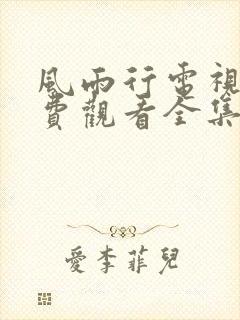 風雨行電視
費觀看全集
愛李菲兒